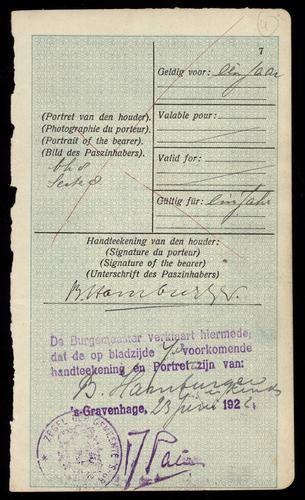 7
Geldig voor: een jaar
(Portret van den houder).
(Photographie du porteur).
(Portrait of the bearer).
(Bild des Paszinhabers).
Valable pour:
Valid for:
Gültig für: ein Jahr
Handteekening van den houder:
(Signature du porteur)
(Signature of the bearer)
(Unterschrift des Paszinhabers)
B. Hamburger
De Burgemeester verklaart hiermede,
dat de op bladzijde voorkomende
handteekening en Portret zijn van:
B. Hamburger
's-Gravenhage, 23 juni 192
ZEGEL DER GEMEENTE 'S